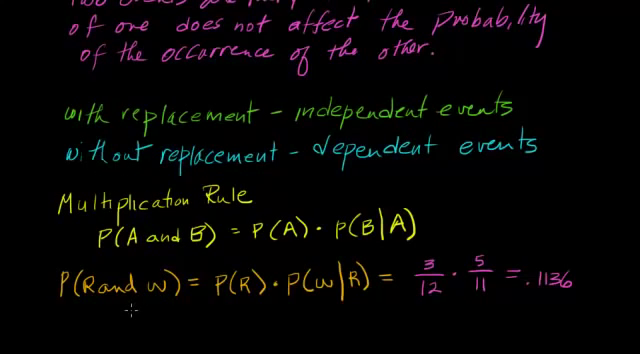 of one does not affect the probability
of the occurrence of the other.
with replacement - independent events
without replacement - dependent events
Multiplication Rule
P(A and B) = P(A) · P(B|A)
P(R and W) = P(R) · P(W|R) = 3/12 · 5/11 = .1136